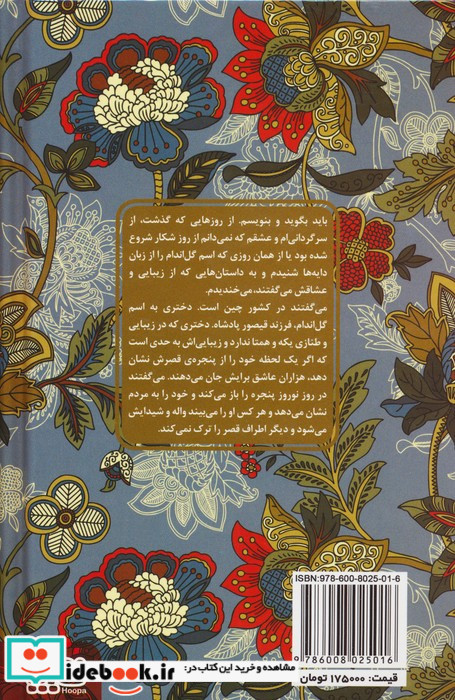 باید بگوید و بنویسم. از روزهایی که گذشت، از
سرگردانی‌ام و عشقم که نمی‌دانم از روز شکار شروع
شده بود یا از همان روزی که اسم گل‌اندام را از زبان
دایه‌ها شنیدم و به داستان‌هایی که از زیبایی و
عشاقش می‌گفتند، می‌خندیدم.
می‌گفتند در کشور چین است. دختری به اسم
گل‌اندام، فرزند قیصور پادشاه. دختری که در زیبایی
و طنازی یکه و همتا ندارد و زیبایی‌اش به حدی است
که اگر یک لحظه خود را از پنجره‌ی قصرش نشان
دهد، هزاران عاشق برایش جان می‌دهند. می‌گفتند
در روز نوروز پنجره را باز می‌کند و خود را به مردم
نشان می‌دهد و هر کس او را می‌بیند واله و شیدایش
می‌شود و دیگر اطراف قصر را ترک نمی‌کند.
ISBN:978-600-8025-01-6
9786008025016
قیمت: ۱۷۵۰۰۰ تومان
مشاهده و خرید این کتاب در:
idebook.ir
Hoopa